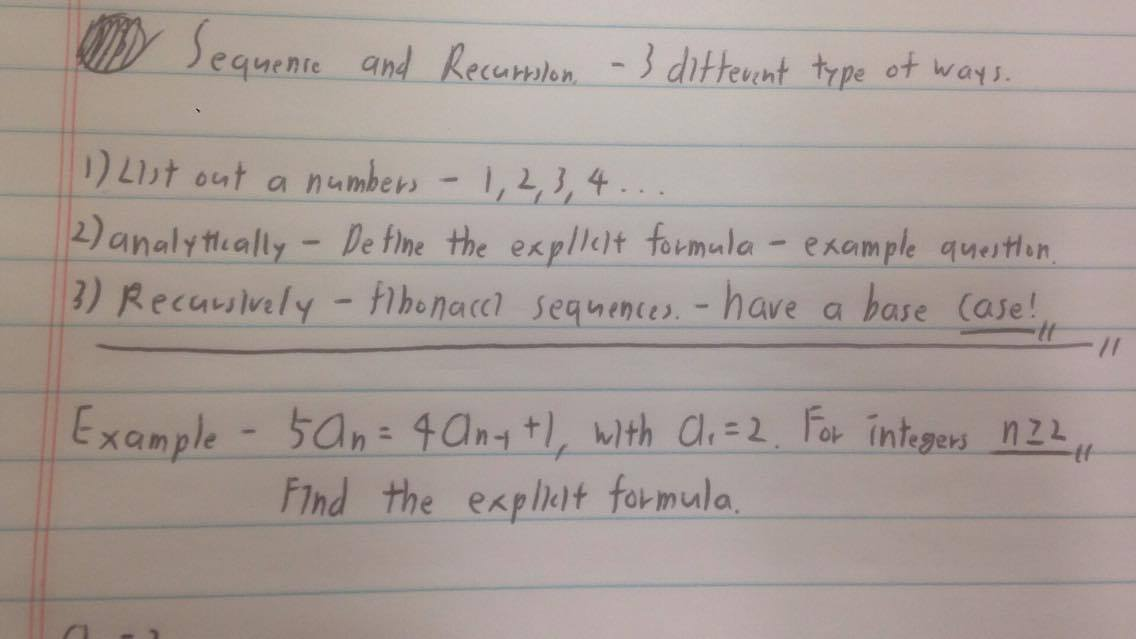 Sequence and Recursion. - 3 different type of ways.
1) List out a numbers - 1, 2, 3, 4 ...
2) analytically - Define the explicit formula - example question.
3) Recursively - fibonacci sequences. - have a base case!
Example - 5aₙ = 4aₙ₋₁ + 1, with a₁ = 2. For integers n ≥ 2
Find the explicit formula.